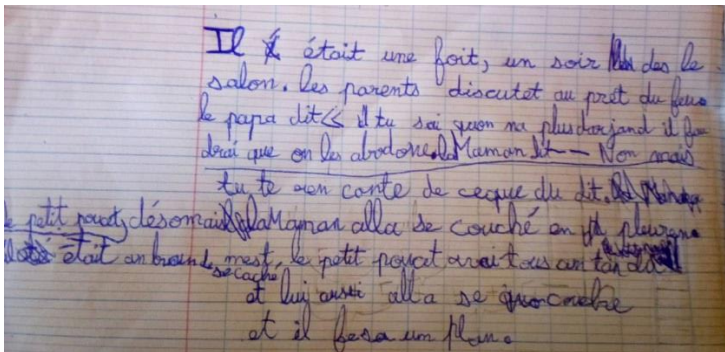 Il était une foit, un soir des le
salon. les parents discutet au prêt du feu
le papa dit << tu sai quon na plus darjand il fau
drai que on les abodone. la Maman dit — Non mais
tu te ren conte de ceque du dit.
le petit poucet, désomais la Maman alla se couché en pleurant
était an train de se caché mest, le petit pouçat avai tous antandu
et lui aussi alla se couche
et il fesa un plan.